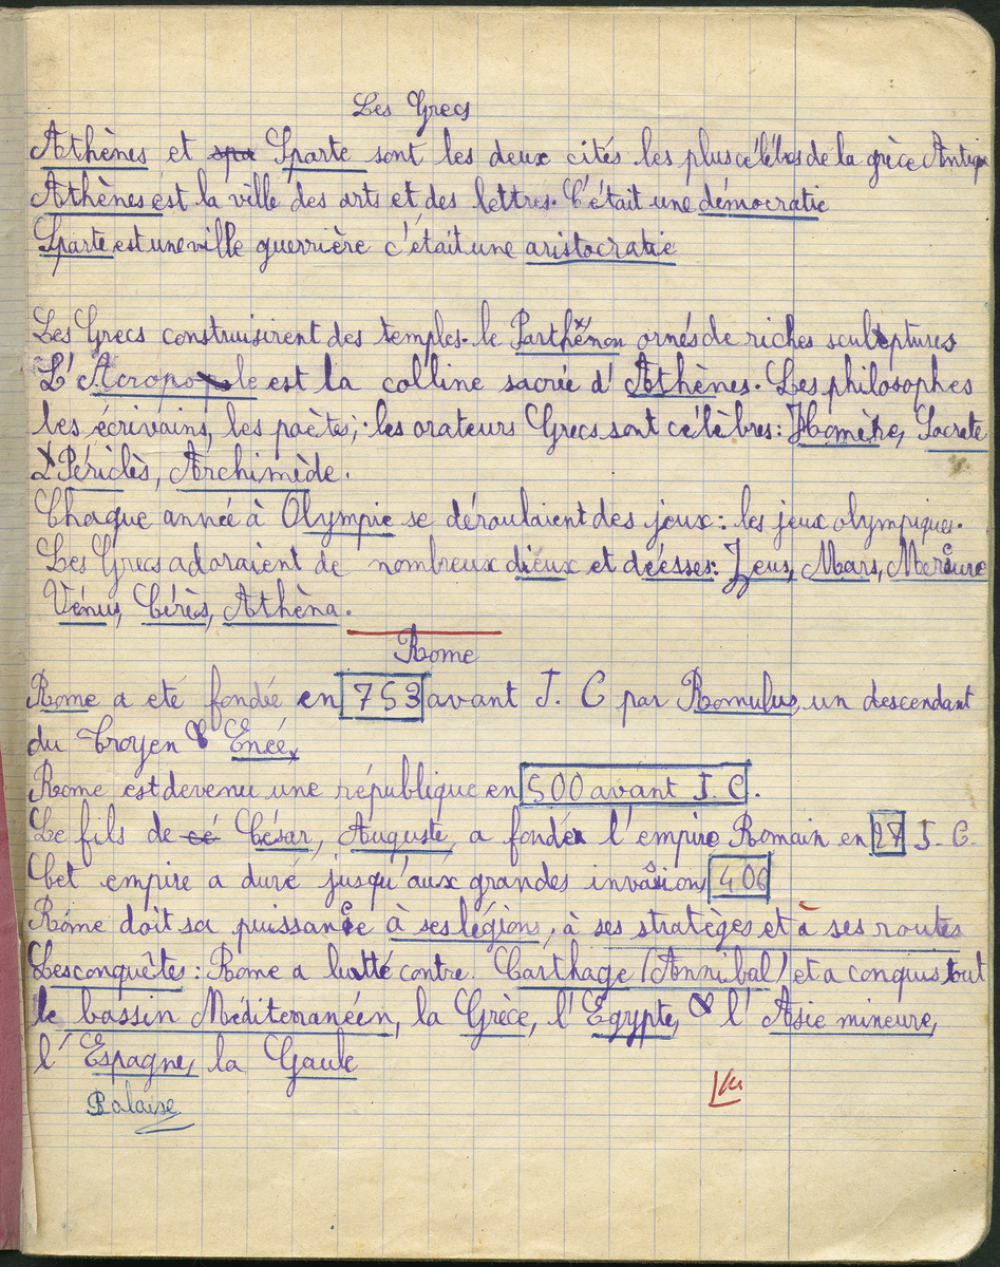 Les Grecs
Athènes et spa Sparte sont les deux cités les plus célèbres de la grèce Antiqu
Athènes est la ville des arts et des lettres. C'était une démocratie
Sparte est une ville guerrière c'était une aristocratie
Les Grecs construisirent des temples. le Parthénon ornés de riches sculptures
L'Acropole est la colline sacrée d'Athènes. Les philosophes
les écrivains, les poètes, les orateurs Grecs sont célèbres: Homère, Socrate
Périclès, Archimède.
Chaque année à Olympie se déroulaient des jeux: les jeux olympiques.
Les Grecs adoraient de nombreux dieux et déesses: Zeus, Mars, Mercure
Vénus, Cérès, Athèna.
Rome
Rome a eté fondée en 753 avant J. C par Romulus, un descendant
du Troyen Enée,
Rome est devenu une république en 500 avant J. C.
Le fils de cé César, Auguste, a fondé l'empire Romain en 27 J. C.
Cet empire a duré jusqu'aux grandes invasions 406
Rome doit sa puissance à ses légions, à ses stratèges et à ses routes
Les conquêtes: Rome a lutté contre Carthage (Annibal) et a conquis tout
le bassin Méditerranéen, la Grèce, l'Egypte, l'Asie mineure,
l'Espagne, la Gaule
Vu